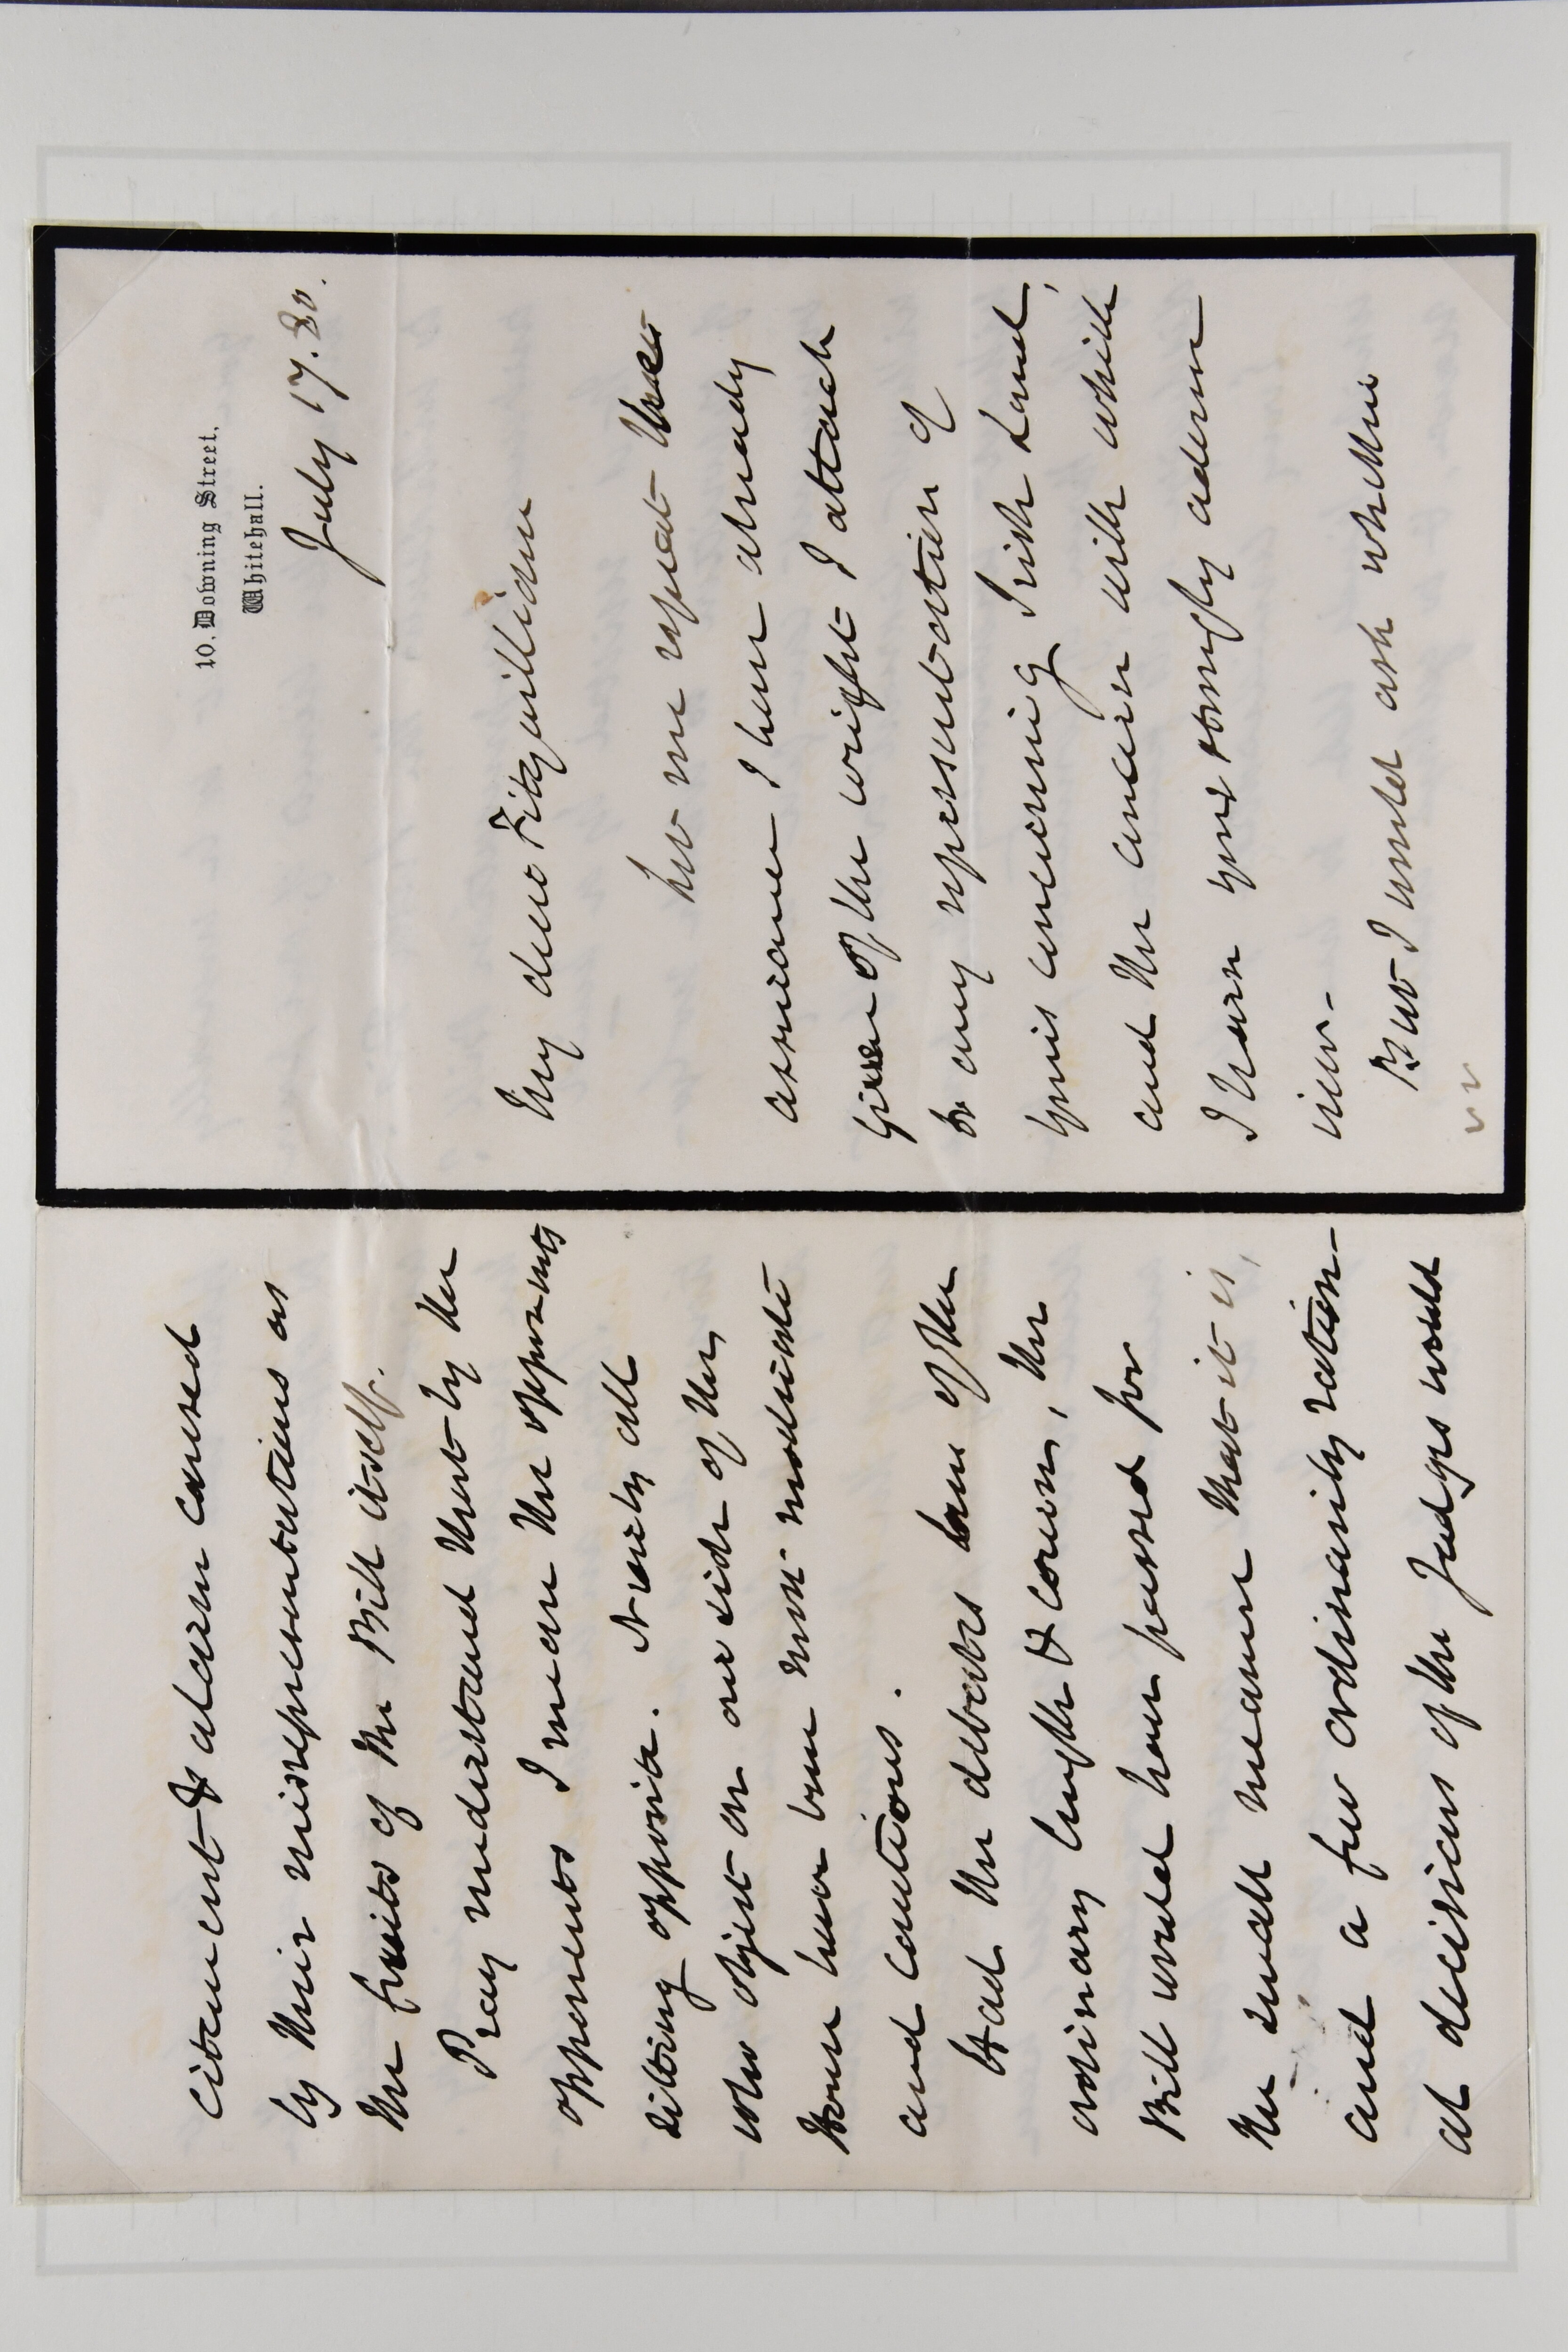 10. Downing Street,
Whitehall.
July 17. 80.
My dear Fitzwilliam
Let me repeat the
assurance I have already
given of the weight I attach
to any representation of
yours concerning Irish Land,
and the concern with which
I learn your strongly adverse
view.
But I would ask whether
citement & alarm caused
by their misrepresentations as
the fruits of the Bill itself.
Pray understand that by the
opponents I mean the opponents
sitting opposite. Nearly all
who object on our side of the
House have been most moderate
and cautious.
Had the debates been of the
ordinary length & course, the
Bill would have passed for
the small measure that it is,
and a few ordinarily ration-
al decisions of the Judges would